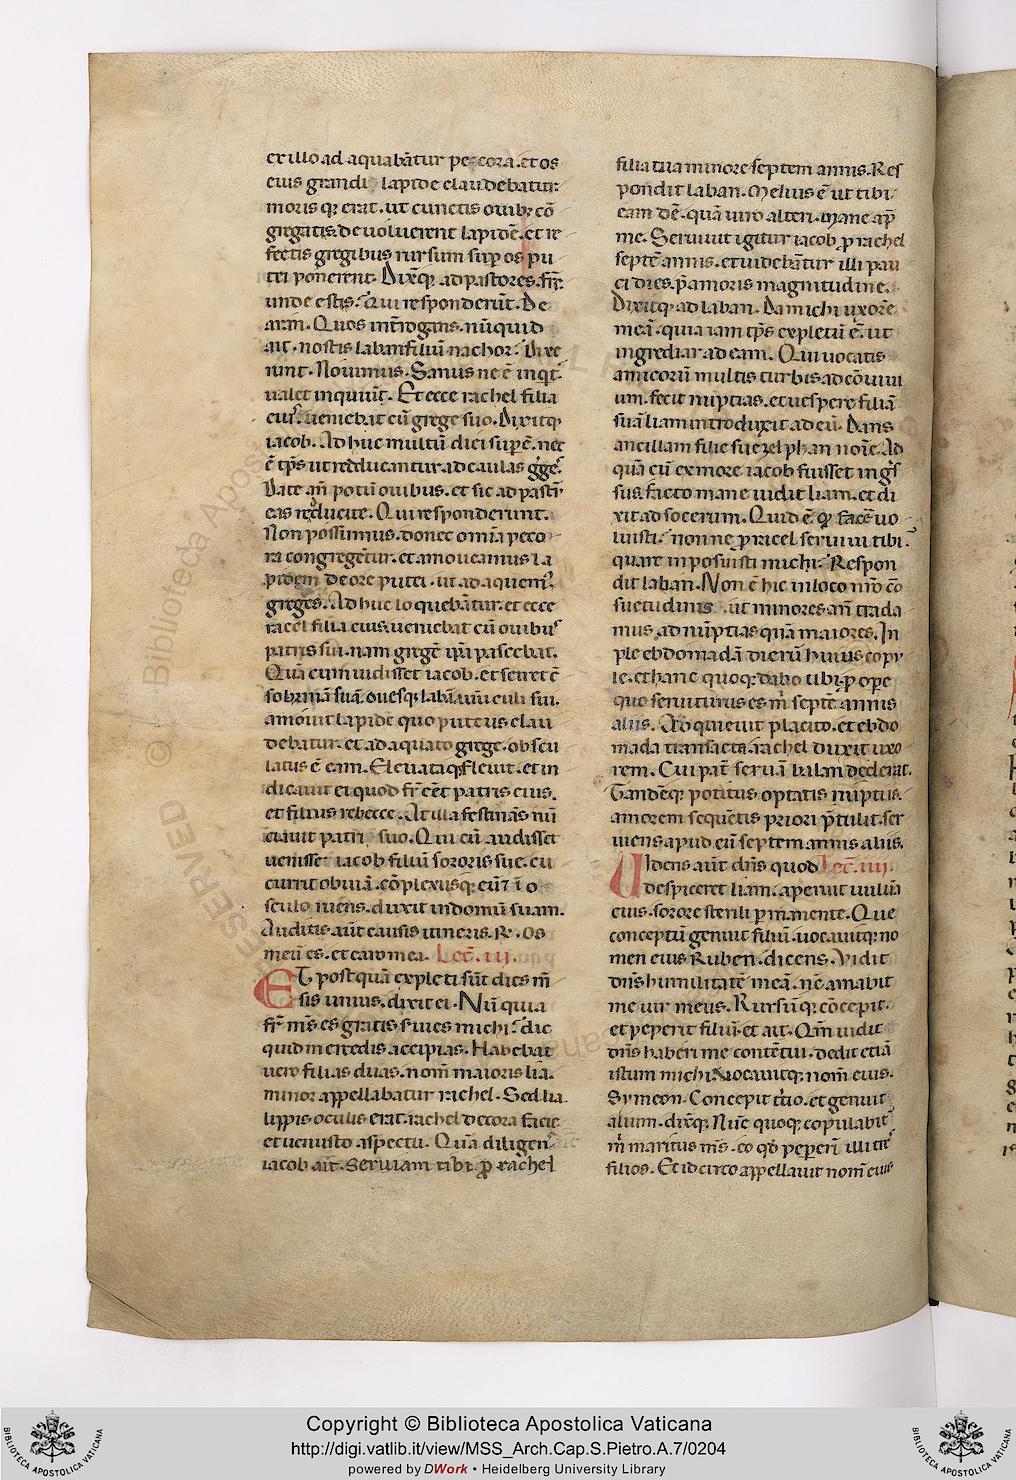 ex illo ad aquabãtur peccora. et os
eius grandi lapide claudebatur.
moris q; erat. ut cunctis ouib; cõ
gregatis deuoluerent lapidẽ. et re
fectis gregibus rursum sup os pu
tei ponerent. Dixẽq; ad pastores. fr̃s
unde estis? Qui responderũt. De
aran. Quos int̃rogans. nũquid
ait. nostis laban filiũ nachor? Dixe
runt. Nouimus. Sanus ne ẽ inqt.
ualet inquiũt. Et ecce rachel filia
eius ueniebat cũ grege suo. Dixitq;
iacob. Ad huc multũ diei sup ẽ. nec
ẽ tp̃s ut reducantur ad caulas gges.
Date añ potũ ouibus. et sic ad pastũ
eas reducite. Qui responderunt.
Non possumus. donec omĩa peco
ra congregẽtur. et amoueamus la
pidem de ore putei. ut ad aquem
greges. Ad huc loquebãtur. et ecce
racel filia eius ueniebat cũ ouibus
patris sui. nam gregẽ ipa pascebat.
Quã cum uidisset iacob. et sciret ẽ
sobrinã suã. ouesq; labã auũculi sui.
amouit lapidẽ quo puteus clau
debatur. et ad aquato grege. obscu
latus ẽ eam. Eleuataq; fleuit. et in
dicauit ei quod fr̃ eẽt patris eius.
et filius rebecce. At illa festinãs nũ
ciauit patri suo. Qui cũ audisset
uenisse iacob filiũ sororis sue. cu
currit obuiã. cõplexusq; eũ ⁊ ĩ o
sculo ruens. duxit in domũ suam.
Auditis aũt causis itineris. R. Os
meũ es. et caro mea. Lec̃. iii.
ET postquã expleti sũt dies m̃
sis unius. dixit ei. Nũ quia
fr̃ m̃s es gratis suies michi? dic
quid mercedis accipias. Habebat
uero filias duas. nom̃ maioris lia.
minor appellabatur rachel. Sed lia
lippis oculis erat. rachel decora facie
et uenusto aspectu. Quã diligens
iacob ait. Seruiam tibi ꝓ rachel
filia tua minore septem annis. Res
pondit laban. Melius ẽ ut tibi
eam dẽ. quã uiro alteri. mane ap̃
me. Seruiuit igitur iacob ꝓ rachel
septẽ annis. et uidebãtur illi pau
ci dies. p̃ amoris magnitudine.
Dixitq; ad laban. Da michi uxorẽ
meã. quia iam tp̃s expletũ ẽ. ut
ingrediar ad eam. Qui uocatis
amicorũ multis turbis ad cõuiui
um. fecit nuptias. et uespere filiã
suã liam introduxit ad eũ. Dans
ancillam filie sue zelphan noĩe. Ad
quã cũ ex more iacob fuisset ings
sus. facto mane uidit liam. et di
xit ad socerum. Quid ẽ q facẽ uo
luisti? nonne ꝓ racel seruiui tibi?
quare inposuisti michi? Respon
dit laban. Non ẽ hic in loco nr̃o cõ
suetudinis. ut minores añ trada
mus ad nũptias quã maiores. In
ple ebdomadã dierũ huius copu
le. et hanc quoq; dabo tibi. ꝓ opere
quo seruiturus es m̃ septẽ annis
aliis. Adquieuit placito. et ebdo
mada transacta. rachel duxit uxo
rem. Cui pat̃ seruã balan dederat.
Tandẽq; potitus optatis nuptiis.
amorem sequẽtis priori p̃tulit. ser
uiens apud eũ septem annis aliis.
Uidens aũt dñs quod Lec̃. iiii.
despiceret liam. aperuit uuluã
eius. sorore sterili pmanente. Que
conceptũ genuit filiũ. uocauitq; no
men eius Ruben. dicens. Vidit
dñs humilitatẽ meã. nẽ amabit
me uir meus. Rursũq; cõcepit.
et peperit filiũ. et ait. Qm̃ uidit
dñs haberi me contẽtui. dedit etiã
istum michi. Uocauitq; nom̃ eius.
Symeon. Concepit t̃tio. et genuit
alium. dixq; Nũc quoq; copulabit
m̃ maritus m̃s. eo qd̃ peperi illi tr̃s
filios. Et idcirco appellauit nom̃ eius
Copyright © Biblioteca Apostolica Vaticana
http://digi.vatlib.it/view/MSS_Arch.Cap.S.Pietro.A.7/0204
powered by DWork • Heidelberg University Library
BIBLIOTECA APOSTOLICA VATICANA
BIBLIOTECA APOSTOLICA VATICANA